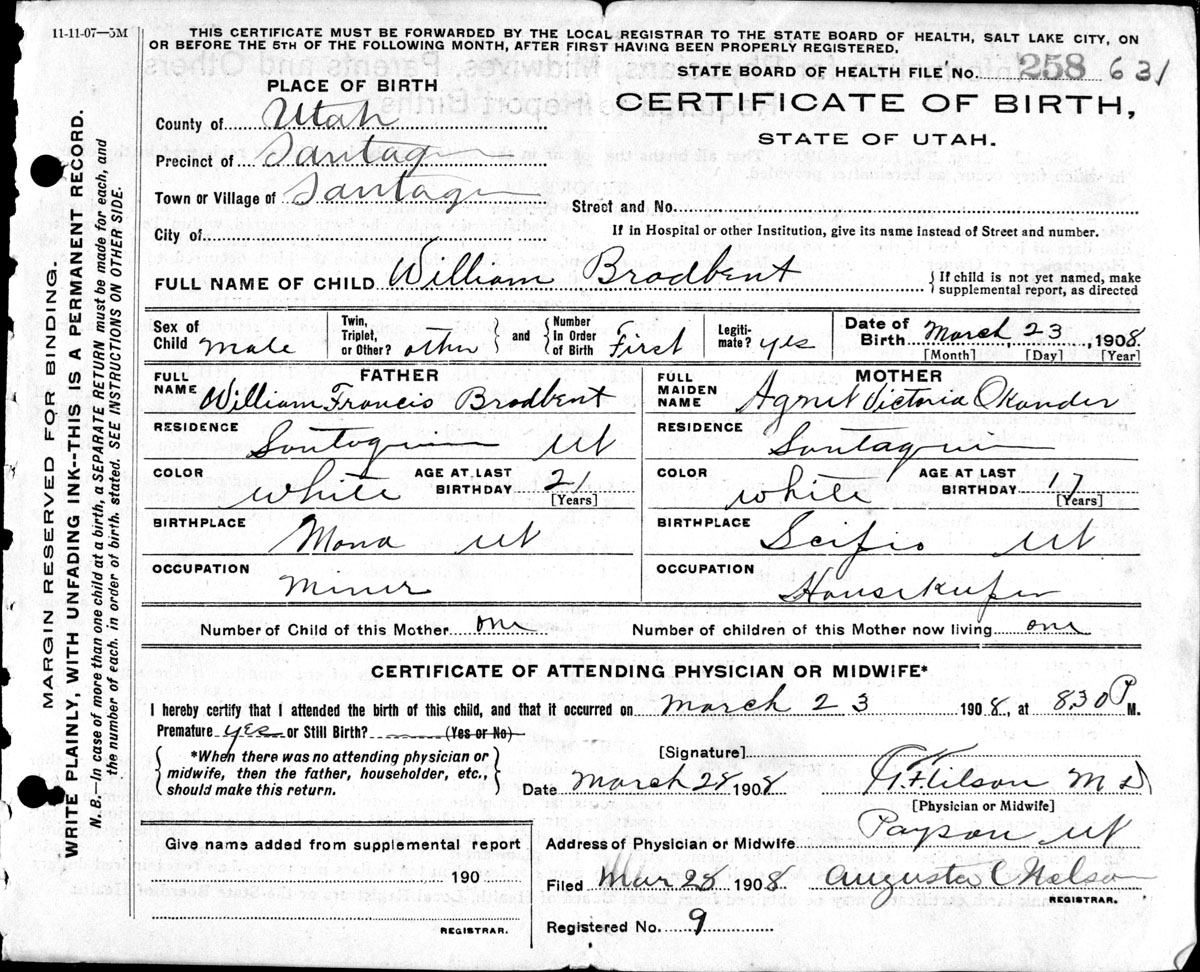 11-11-07—5M
THIS CERTIFICATE MUST BE FORWARDED BY THE LOCAL REGISTRAR TO THE STATE BOARD OF HEALTH, SALT LAKE CITY, ON
OR BEFORE THE 5TH OF THE FOLLOWING MONTH, AFTER FIRST HAVING BEEN PROPERLY REGISTERED.
STATE BOARD OF HEALTH FILE No. 258 631
CERTIFICATE OF BIRTH,
STATE OF UTAH.
PLACE OF BIRTH
County of Utah
Precinct of Santaquin
Town or Village of Santaquin
Street and No.
City of
If in Hospital or other Institution, give its name instead of Street and number.
FULL NAME OF CHILD William Brodbent
{ If child is not yet named, make
supplemental report, as directed
Sex of Child male
Twin, Triplet, or Other? other } and { Number In Order of Birth First
Legitimate? yes
Date of Birth March 23, 1908
[Month] [Day] [Year]
FATHER
FULL NAME William Francis Brodbent
RESIDENCE
Santaquin Ut
COLOR White AGE AT LAST BIRTHDAY 21 [Years]
BIRTHPLACE
Mona Ut
OCCUPATION
Miner
MOTHER
FULL MAIDEN NAME Victoria
RESIDENCE
Santaquin
COLOR White AGE AT LAST BIRTHDAY 17 [Years]
BIRTHPLACE
Scifio Ut
OCCUPATION
Housekeeper
Number of Child of this Mother one Number of children of this Mother now living one
CERTIFICATE OF ATTENDING PHYSICIAN OR MIDWIFE*
I hereby certify that I attended the birth of this child, and that it occurred on March 23 1908, at 830 P M.
Premature yes or Still Birth? (Yes or No)
{ *When there was no attending physician or
midwife, then the father, householder, etc.,
should make this return. }
[Signature]
Date March 28 1908 M D
[Physician or Midwife]
Address of Physician or Midwife Payson Ut
Give name added from supplemental report
190
REGISTRAR.
Filed Mar 28 1908 Augusta C Nelson
REGISTRAR.
Registered No. 9
MARGIN RESERVED FOR BINDING.
WRITE PLAINLY, WITH UNFADING INK--THIS IS A PERMANENT RECORD.
N. B.—In case of more than one child at a birth, a SEPARATE RETURN must be made for each, and
the number of each, in order of birth, stated. SEE INSTRUCTIONS ON OTHER SIDE.